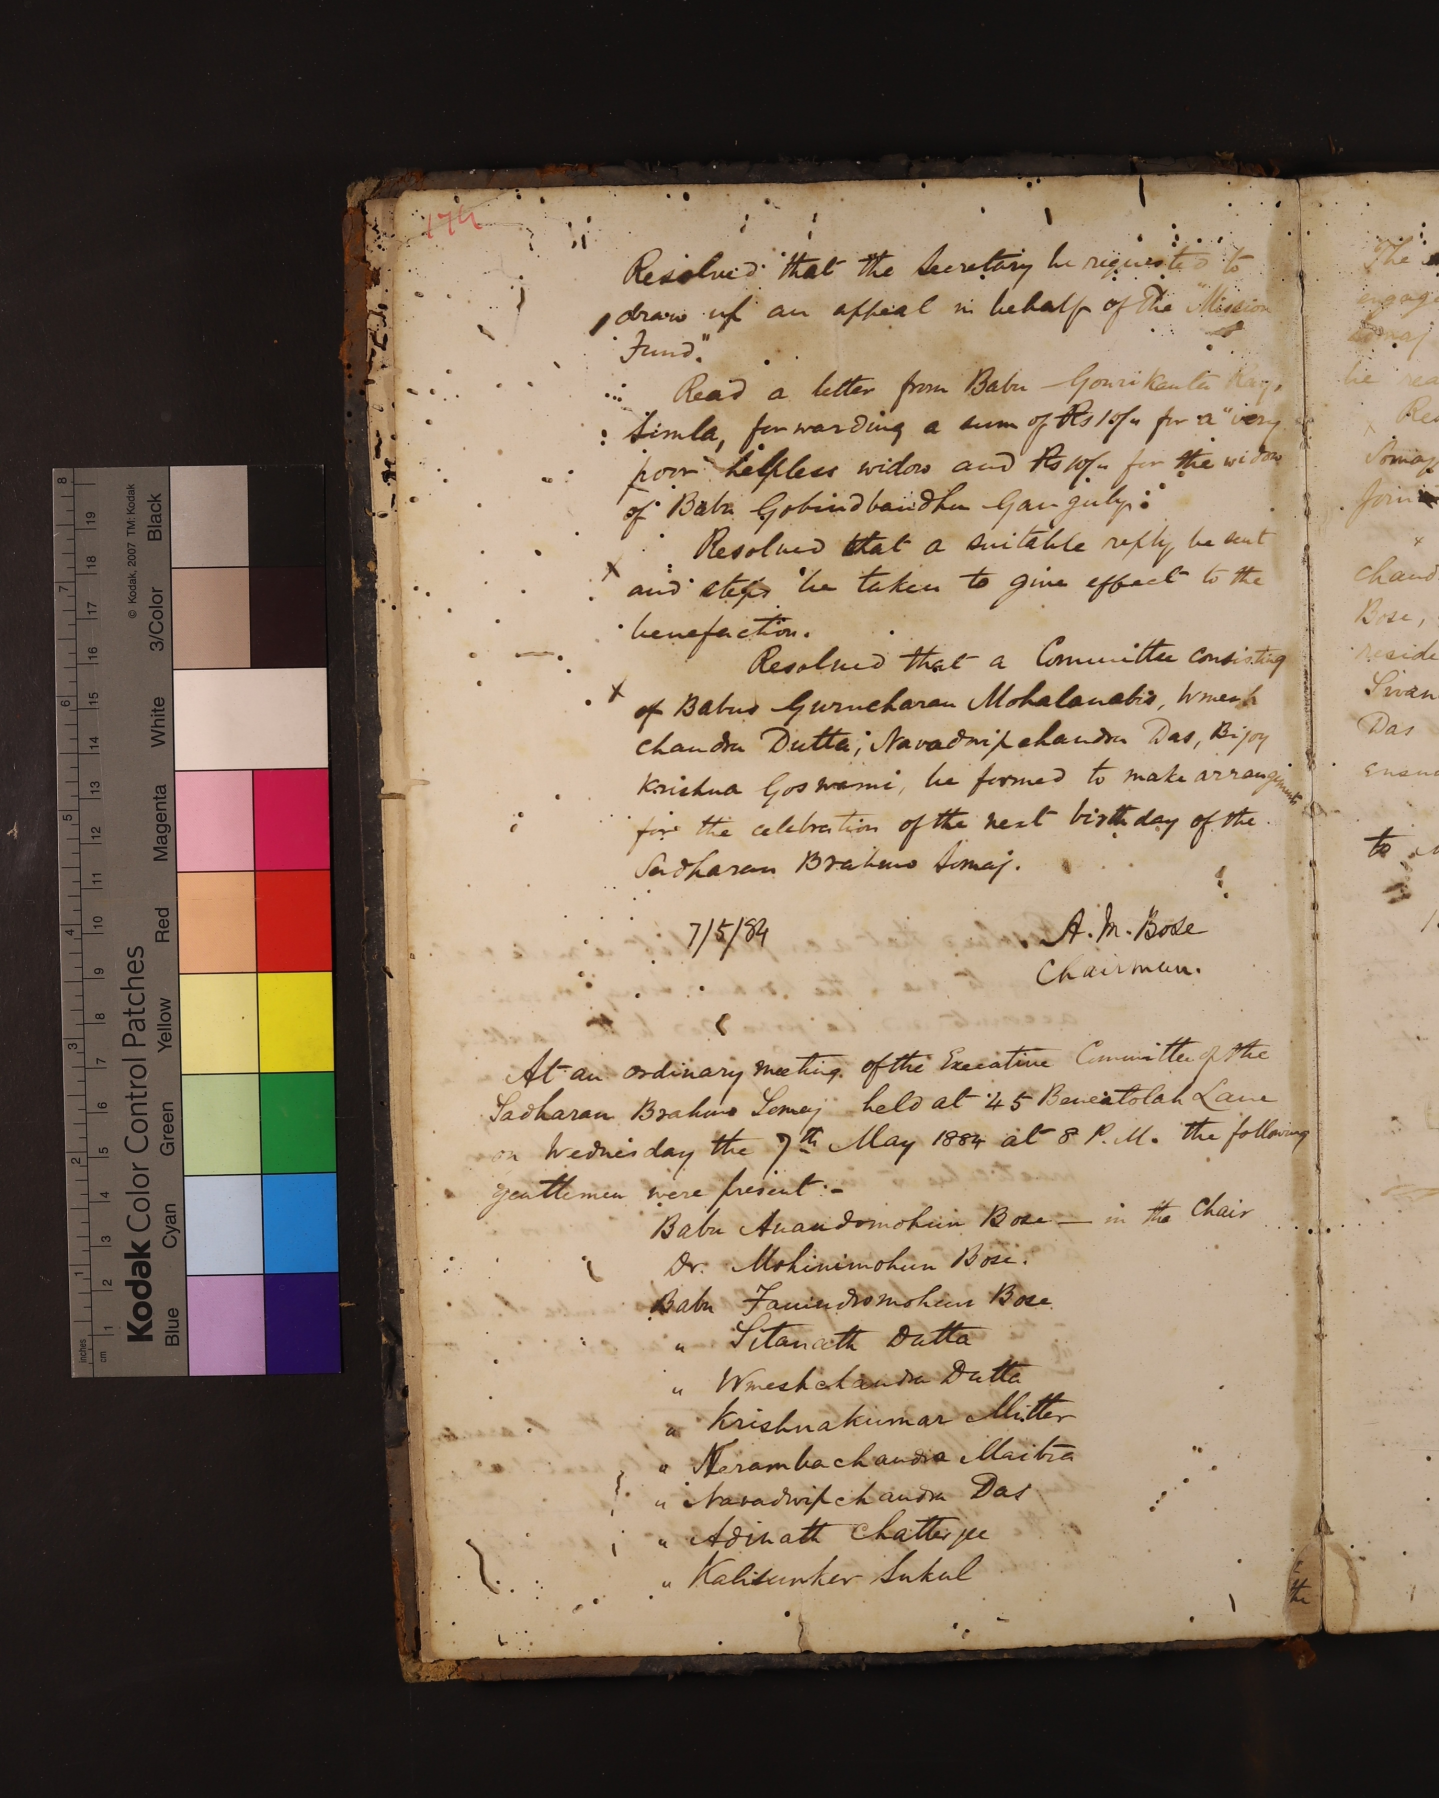 174
Resolved that the Secretary be requested to
draw up an appeal in behalf of the "Mission
Fund".
Read a letter from Babu Gourikanta Ray,
Simla, forwarding a sum of Rs 10/- for a "very
poor" helpless widow and Rs 10/- for the widow
of Babu Gobindbandhu Ganguly.
Resolved that a suitable reply be sent
x and steps be taken to give effect to the
benefaction.
Resolved that a Committee consisting
x of Babus Gurucharan Mohalanabis, Umesh
chandra Dutta, Navadwip chandra Das, Bijoy
Krishna Goswami, be formed to make arrangements
for the celebration of the next birthday of the
Sadharan Brahmo Somaj.
7/5/84 A. M. Bose
Chairman.
At an ordinary meeting of the Executive Committee of the
Sadharan Brahmo Somaj held at 45 Beneatolah Lane
on Wednesday the 7th May 1884 at 8 P.M. the following
gentlemen were present :-
Babu Anandomohun Bose — in the Chair
Dr. Mohinimohun Bose.
Babu Fanindromohun Bose
" Sitanath Dutta
" Umeshchandra Dutta
" Krishnakumar Mitter
" Herambachandra Maitra
" Navadwipchandra Das
" Adinath Chatterjee
" Kalisunker Sukul
the
The
be
Bose,
Das
to
Kodak Color Control Patches
© Kodak, 2007 TM: Kodak
Blue Cyan Green Yellow Red Magenta White 3/Color Black
inches 1 2 3 4 5 6 7 8
cm 1 2 3 4 5 6 7 8 9 10 11 12 13 14 15 16 17 18 19